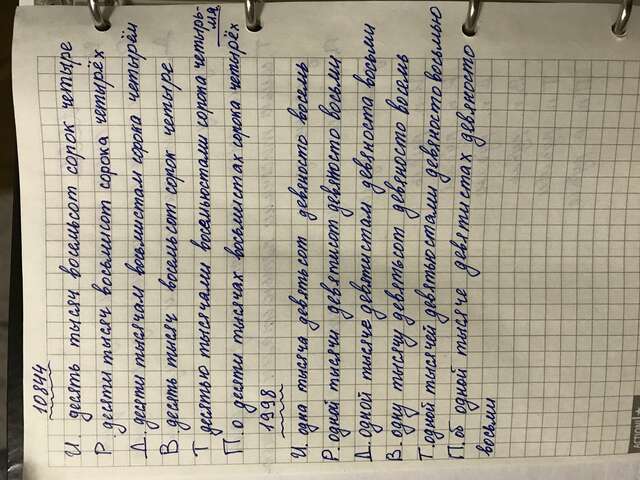 10844
И. десять тысяч восемьсот сорок четыре
Р. десяти тысяч восьмисот сорока четырёх
Д. десяти тысячам восьмистам сорока четырём
В десять тысяч восемьсот сорок четыре
Т десятью тысячами восемьюстами сорока четырь-
мя
П. о десяти тысячах восьмистах сорока четырёх
1998
И. одна тысяча девятьсот девяносто восемь
Р. одной тысячи девятисот девяносто восьми
Д. одной тысяче девятистам девяноста восьми
В. одну тысячу девятьсот девяносто восемь
Т. одной тысячей девятьюстами девяносто восемью
П. об одной тысяче девятистах девяносто
восьми